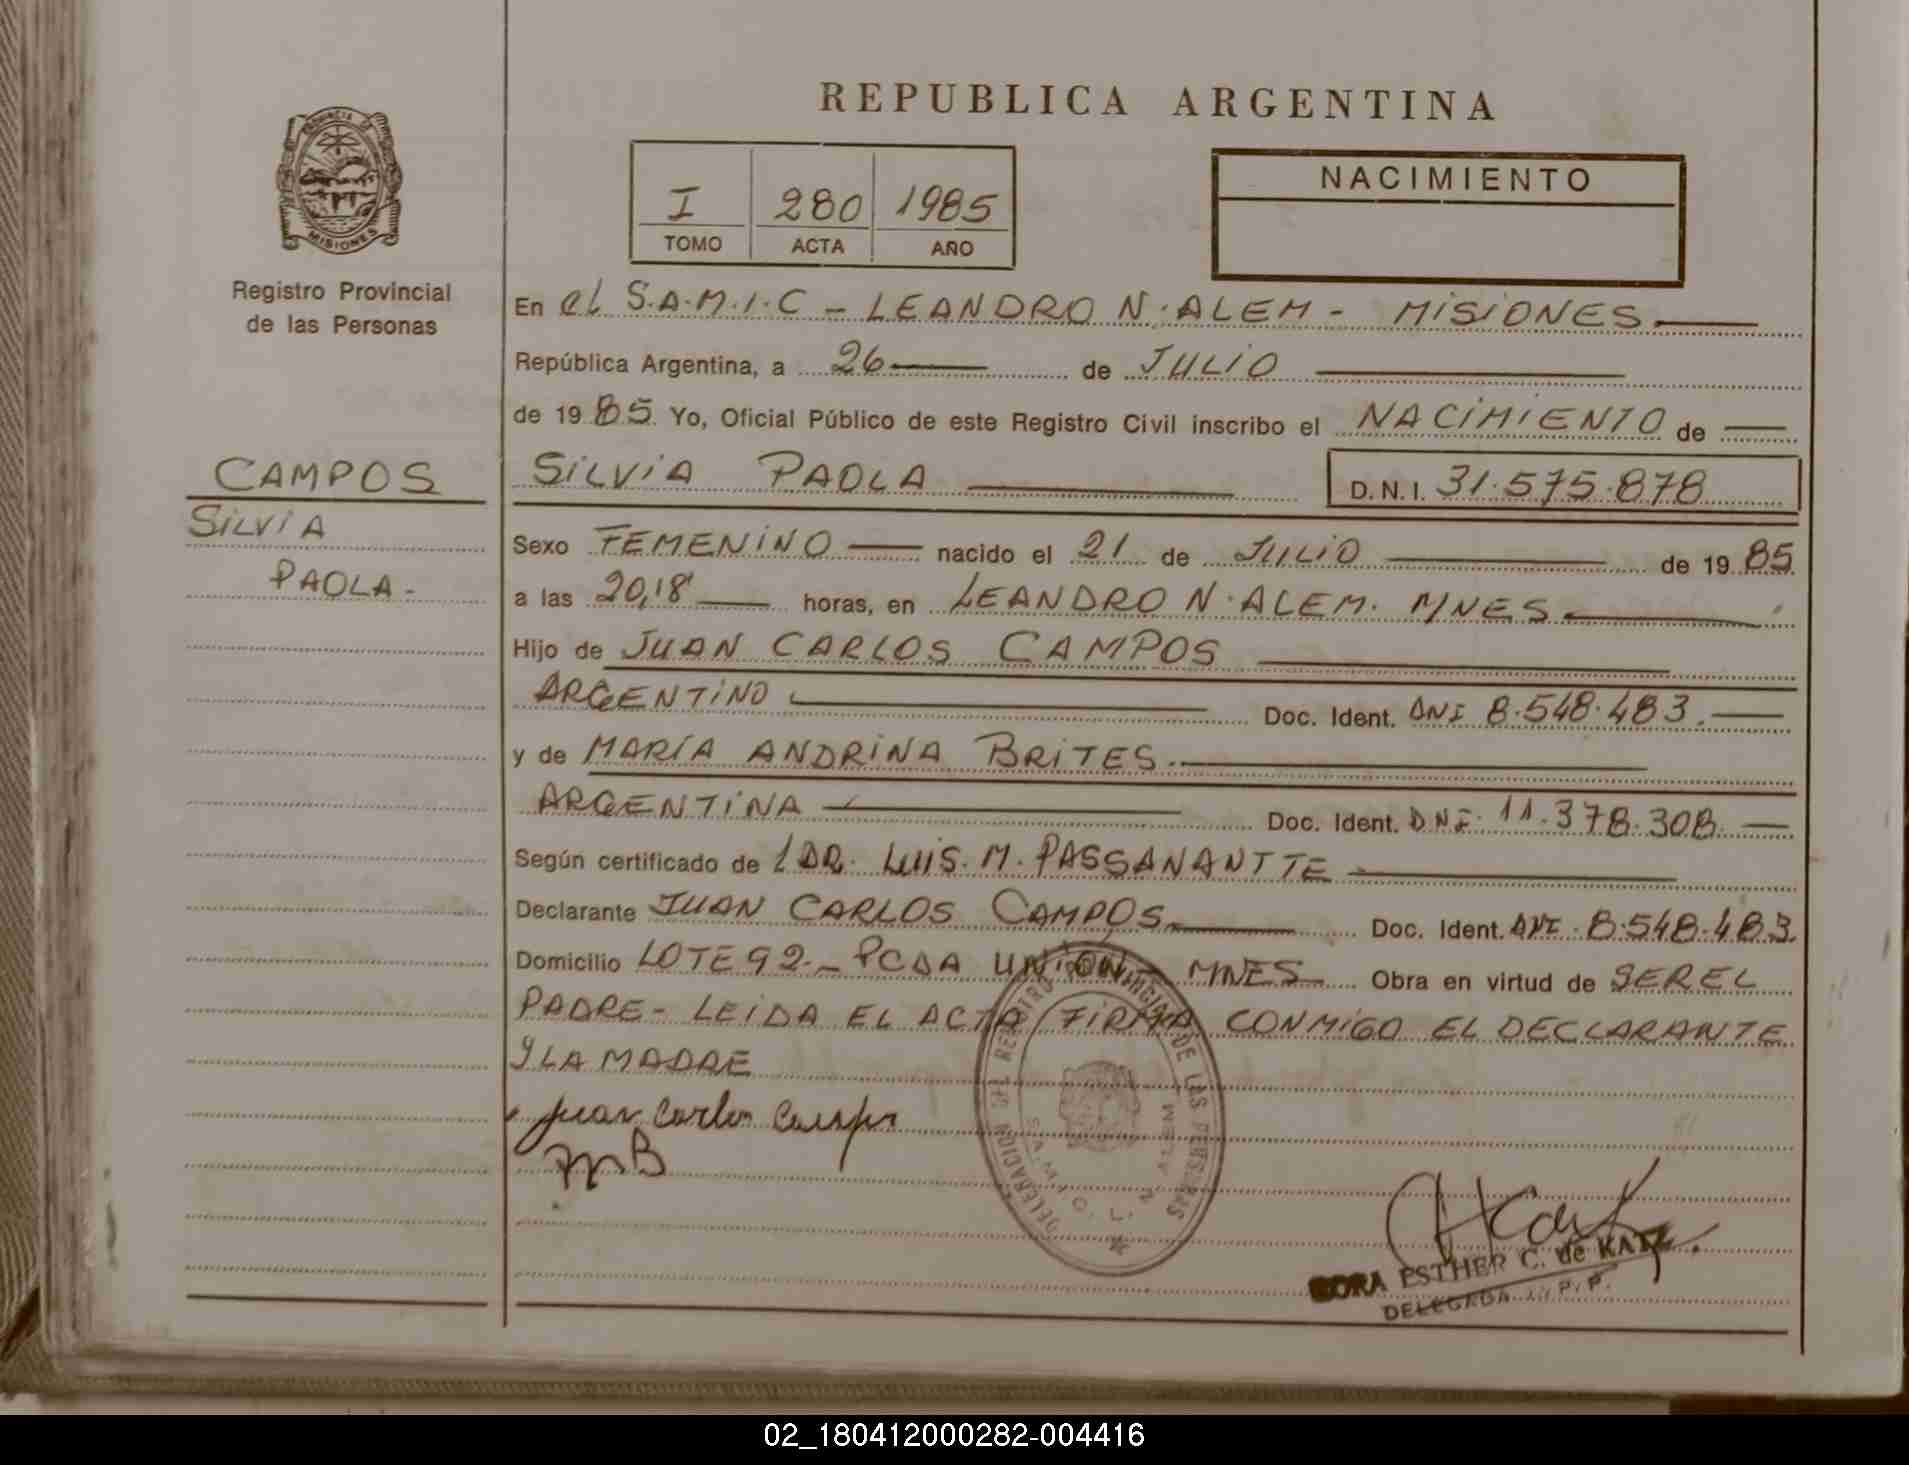 REPUBLICA ARGENTINA
PROVINCIA DE
MISIONES
Registro Provincial
de las Personas
I 280 1985
TOMO ACTA AÑO
NACIMIENTO
En el S.A.M.I.C - LEANDRO N. ALEM - MISIONES
República Argentina, a 26 de JULIO
de 1985 Yo, Oficial Público de este Registro Civil inscribo el NACIMIENTO de
CAMPOS
SILVIA
PAOLA -
SILVIA PAOLA D.N.I. 31.575.878
Sexo FEMENINO nacido el 21 de JULIO de 1985
a las 20,18' horas, en LEANDRO N. ALEM. MNES
Hijo de JUAN CARLOS CAMPOS
ARGENTINO Doc. Ident. DNI 8.548.483.
y de MARÍA ANDRINA BRITES.
ARGENTINA Doc. Ident. DNI. 11.378.308.
Según certificado de l DR. LUIS. M. PASSANANTTE
Declarante JUAN CARLOS CAMPOS Doc. Ident. DNI. 8.548.483
Domicilio LOTE 92 - PCDA UNIÓN - MNES Obra en virtud de SER EL
PADRE - LEIDA EL ACTA FIRMA CONMIGO EL DECLARANTE
Y LA MADRE
Juan Carlos Campos
MB
DELEGACION DEL REGISTRO PROVINCIAL DE LAS PERSONAS
S.A.M.I.C. L. N. ALEM
ESTHER C. de KATZ
DELEGADA R.P.P.
02_180412000282-004416